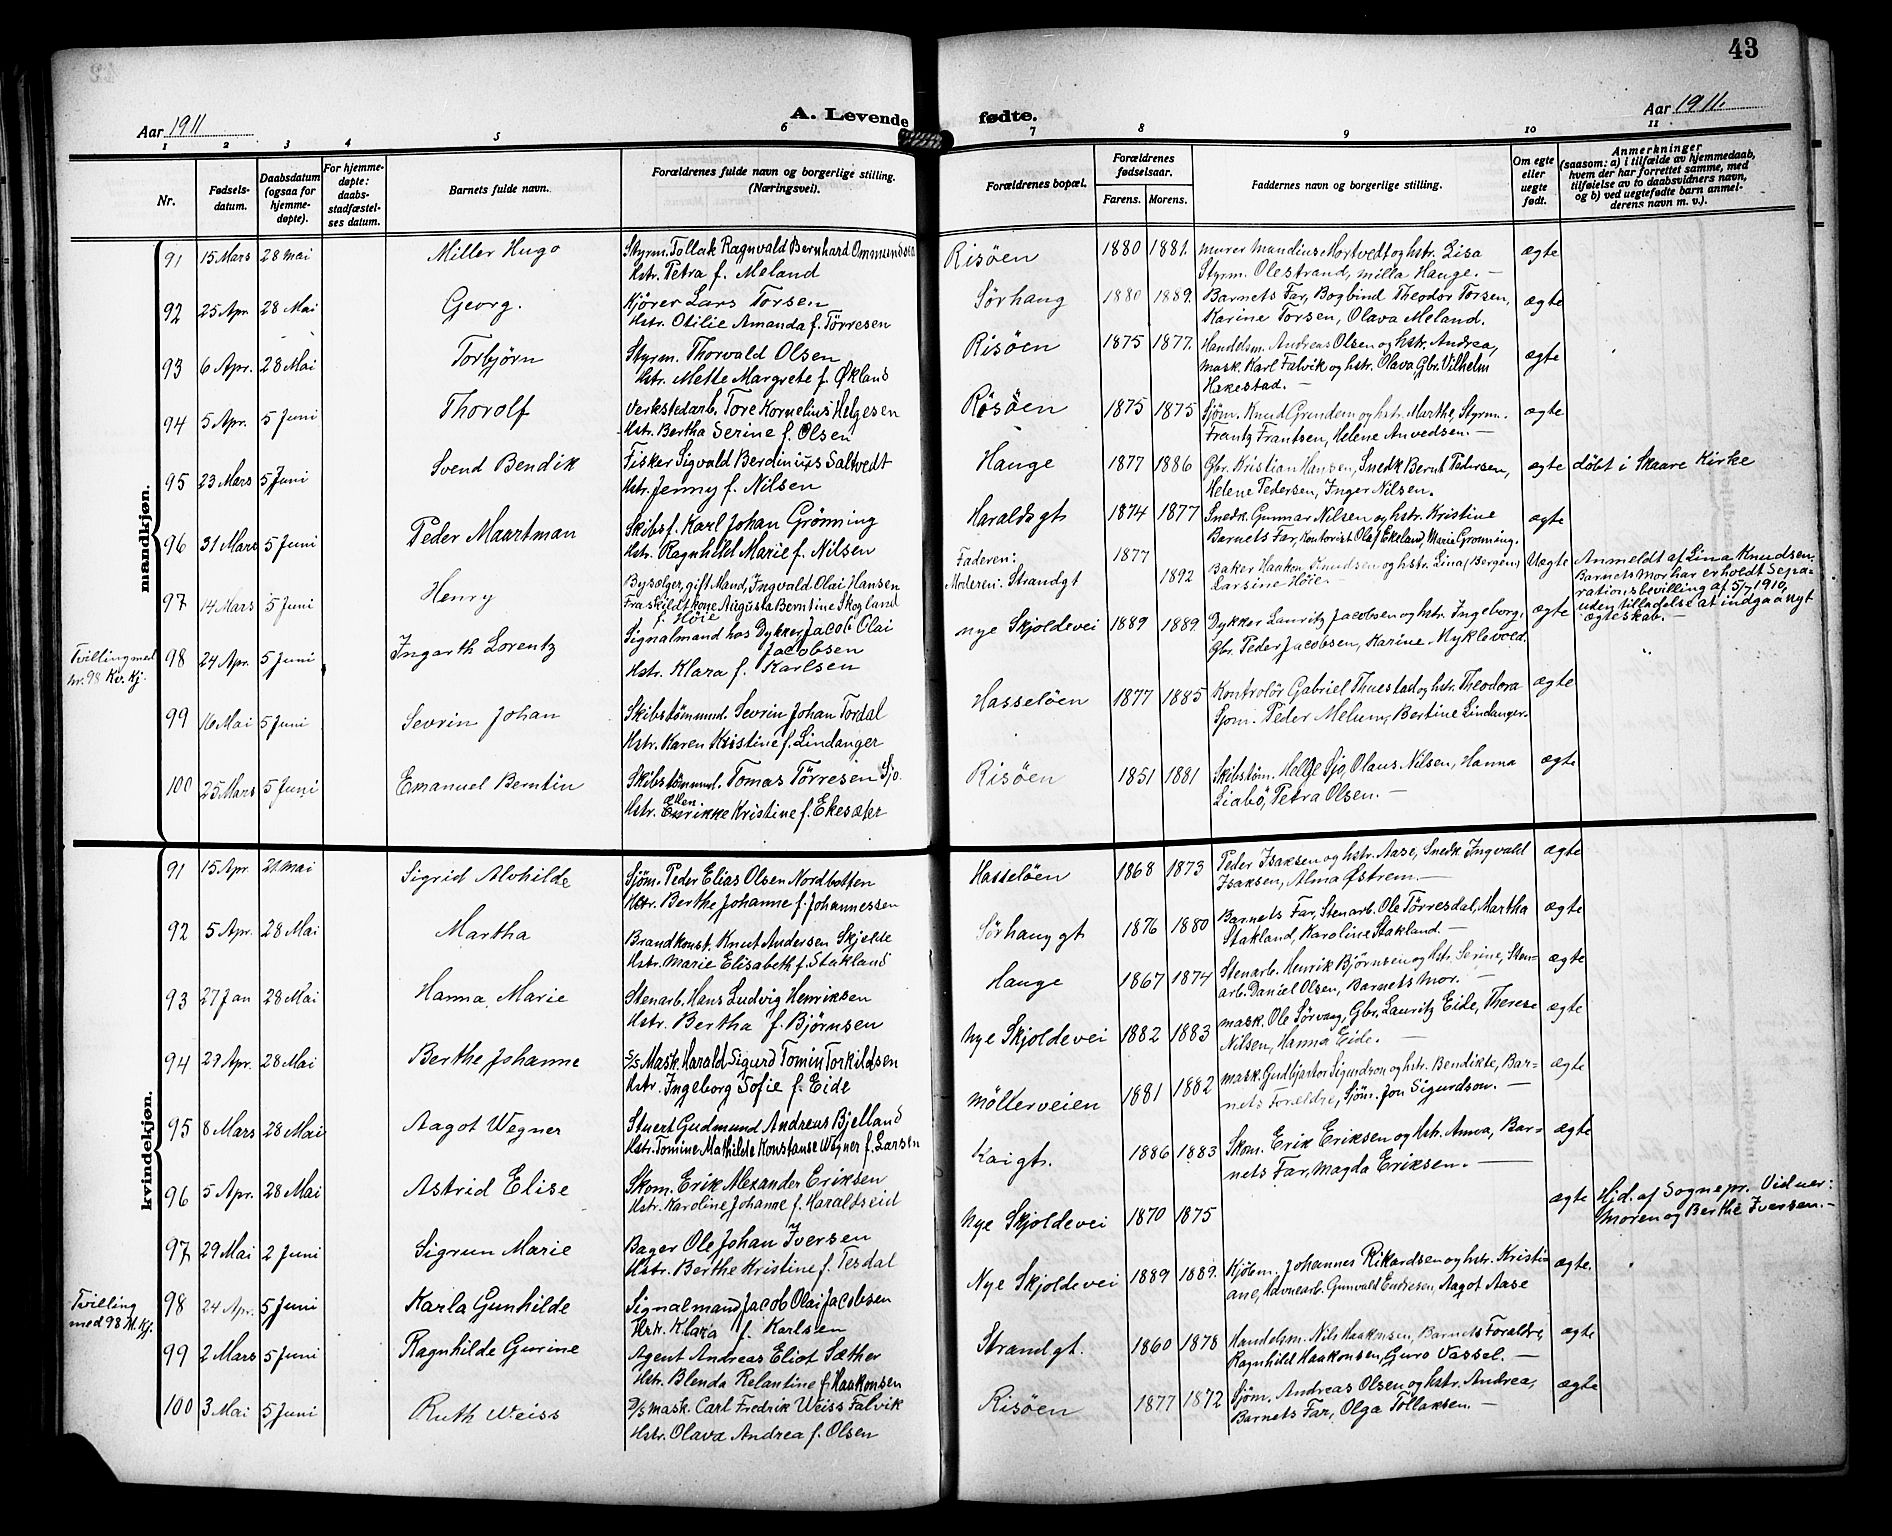 43
A. Levende fødte.
Aar 1911
Aar 1911.
1 2 3 4 5 6 7 8 9 10 11
Nr.
Fødsels-datum.
Daabsdatum (ogsaa for hjemme-døpte).
For hjemme-døpte: daabs-stadfæstel-ses datum.
Barnets fulde navn.
Forældrenes fulde navn og borgerlige stilling. (Næringsvei).
Forældrenes bopæl.
Forældrenes fødselsaar.
Farens. Morens.
Faddernes navn og borgerlige stilling.
Om egte eller uegte født.
Anmerkninger
(saasom: a) i tilfælde av hjemmedaab, hvem der har forrettet samme, med tilføielse av to daabsvidners navn, og b) ved uegtefødte barn anmel-derens navn m. v.).
mandkjøn.
91 15 Mars 28 Mai Miller Hugo Styrm. Tollak Ragnvald Bernhard Ommundsen Risöen 1880 1881. Murer Mandius Mortvedt og hstr. Lisa ægte
Hstr. Petra f. Meland Styrm. Olestrand, Milla Hauge.—
92 25 Apr. 28 Mai Georg. Kjörer Lars Torsen Sörhaug 1880 1889. Barnets Far, Bogbind Theodor Torsen, ægte
Hstr. Otilie Amanda f. Törresen Karine Torsen, Olava Meland.
93 6 Apr. 28 Mai Torbjörn Styrm. Thorvald Olsen Risöen 1875 1877. Handelsm. Andreas Olsen og hstr. Andrea, ægte
Hstr. Mette Margrete f. Økland Mask. Karl Falvik og hstr. Olava, Gbr. Vilhelm
Hakestad.—
94 5 Apr. 5 Juni Thorolf Verkstedarb. Tore Kornelius Helgesen Risöen 1875 1875 Sjöm. Knud Grindem og hstr. Marthe, Styrm. ægte
Hstr. Bertha Serine f. Olsen Frantz Frantsen, Helene Anvedsen.—
95 23 Mars 5 Juni Svend Bendik Fisker Sigvald Berdinius Saltvedt Hauge 1877 1886 Gbr. Kristian Hansen, Snedk Bernt Pedersen, ægte döbt i Skaare Kirke
Hstr. Jenny f. Nilsen Helene Pedersen, Inger Nilsen.
96 31 Mars 5 Juni Peder Maartman Skibsf. Karl Johan Grönning Haraldsgt 1874 1877 Snedk. Gunnar Nilsen og hstr. Kristine ægte
Hstr. Ragnhild Marie f. Nilsen Barnets Far, Kontorist Olaf Ekeland, Marie Gronning.
97 14 Mars 5 Juni Henry Bysælger, gift Mand, Ingvald Olai Hansen Faderen: 1877 Baker Haakon Knudsen og hstr. Lina (Bergen) Uægte Anmeldt af Lina Knudsen.
Fraskildt kone Augusta Berntine Skogland Moderen: Strandgt 1892 Larsine Höie Barnets Mor har erholdt Sepa-
f. Höie rationsbevilling af 5/7 1910,
uden tilladelse at indgaa nyt
ægteskab.—
Tvilling med nr. 98 Kv. Kj. 98 24 Apr. 5 Juni Ingarth Lorentz Signalmand hos Dykker Jacob Olai Nye Skjoldevei 1889 1889. Dykker Lauritz Jacobsen og hstr. Ingeborg, ægte
Jacobsen Gbr. Peder Jacobsen, Karine Myklevold.
Hstr. Klara f. Karlsen
99 16 Mai 5 Juni Sevrin Johan Skibstömmd. Sevrin Johan Tordal Hasselöen 1877 1885 Kontrolör Gabriel Thuestad og hstr. Theodora ægte
Hstr. Karen Kristine f. Lindanger Sjöm. Peder Melum, Bertine Lindanger.
100 25 Mars 5 Juni Emanuel Berntin Skibstömmd. Tomas Törresen Sjo. Risöen 1851 1881 Skibstöm. Helge Sjo, Olaus Nilsen, Hanna ægte
Hstr. Kristine f. Ekesæter Liabö, Petra Olsen.—
kvindekjøn.
91 15 Apr. 21 Mai Sigrid Alvhilde Sjöm. Peder Elias Olsen Nordbotten Hasselöen 1868 1873 Peder Isaksen og hstr. Aase, Snedk Ingvald ægte
Hstr. Berthe Johanne f. Johannessen Isaksen, Alma Østrem.—
92 5 Apr. 28 Mai Martha Brandkonst. Knut Andersen Skjelde Sörhauggt 1876 1880 Barnets Far, Stenarb. Ole Törresdal, Martha ægte
Hstr. Marie Elisabeth f. Stakland Stakland, Karoline Stakland.—
93 27 Jan 28 Mai Hanna Marie Stenarb. Hans Ludvig Henriksen Hauge 1867 1874 Stenarb. Henrik Björnsen og hstr. Serine, Sten- ægte
Hstr. Bertha f. Björnsen arb. Daniel Olsen, Barnets Mor.—
94 29 Apr. 28 Mai Berthe Johanne S/S Mask Harald Sigurd Tomin Torkildsen Nye Skjoldevei 1882 1883 Mask. Ole Sörvaag, Gbr. Lauritz Eide, Therese ægte
Hstr. Ingeborg Sofie f. Eide Nilsen, Hanna Eide.—
95 8 Mars 28 Mai Aagot Wegner Stuert Gudmund Andreas Bjelland Möllerveien 1881 1882 Mask. Gudbjartor Sigurdson og hstr. Bendikte, Bar- ægte
Hstr. Tomine Mathilde Konstanse Wegner f. Larsen nets Forældre, Sjöm. Jon Sigurdson.—
96 5 Apr. 28 Mai Astrid Elise Skom. Erik Alexander Eriksen Kaigt. 1886 1883 Skom. Erik Eriksen og hstr. Anna, Bar- ægte
Hstr. Karoline Johanne f. Haraldseid nets Far, Magda Eriksen.—
97 29 Mai 2 Juni Sigrun Marie Bager Ole Johan Iversen Nye Skjoldevei 1870 1875 ægte Hjd. af Sognepr. Vidner:
Hstr. Berthe Kristine f. Tesdal Moren og Berthe Iversen.—
Tvilling med 98 M. Kj. 98 24 Apr. 5 Juni Karla Gunhilde Signalmand Jacob Olai Jacobsen Nye Skjoldevei 1889 1889. Kjöbm. Johannes Rikardsen og hstr. Kristi- ægte.
Hstr. Klara f. Karlsen ane, Gunvald Endresen, Aagot Aase
99 2 Mars 5 Juni Ragnhilde Gurine Agent Andreas Eliot Sæther Strandgt. 1860 1878 Handelsm. Nils Haakonsen, Barnets Forældre, ægte
Hstr. Blenda Relantine f. Haakonsen Ragnhild Haakonsen, Guro Vassel.—
100 3 Mai 5 Juni Ruth Weiss D/S Mask. Carl Fredrik Weiss Falvik Risöen 1877 1872 Sjöm. Andreas Olsen og hstr. Andrea, ægte
Hstr. Olava Andrea f. Olsen Barnets Far, Olga Tollaksen.—